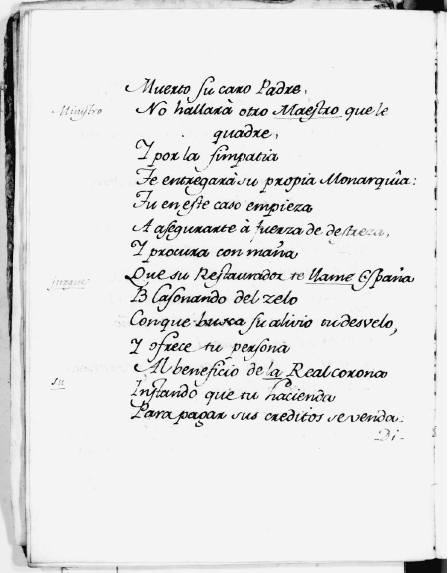 Muerto su caro Padre,
Ministro
No hallarà otro Maestro que le
quadre,
Y por la simpatia
Te entregarà su propia Monarquìa:
Tu en este caso empieza
A asegurarte à fuerza de destreza,
Y procura con maña
juzgue
Que su Restaurador te llame España
Blasonando del zelo
Conque busca su alivio tu desvelo,
Y ofrece tu persona
Al beneficio de la Real corona
su
Instando que tu hacienda
Para pagar sus creditos se venda:
Di-